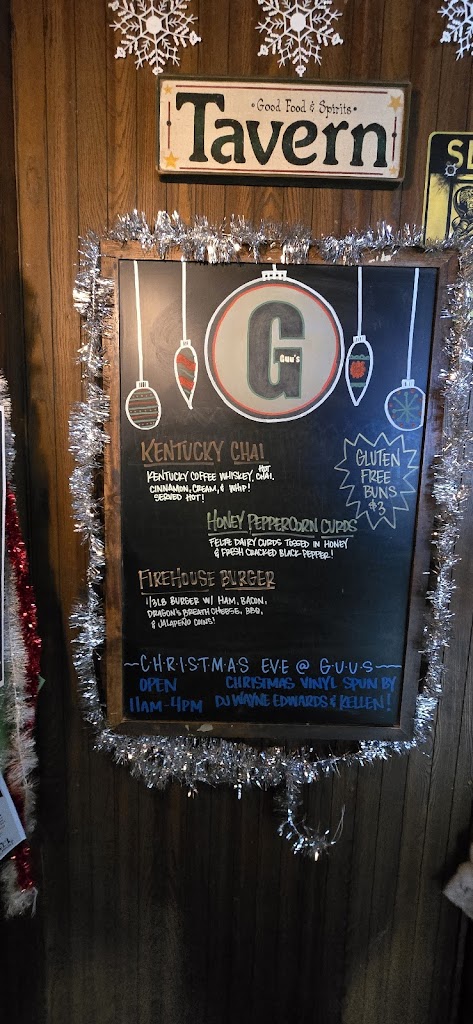 Good Food & Spirits
Tavern
G
Guu's
KENTUCKY CHAI
KENTUCKY COFFEE WHISKEY, HOT CHAI,
CINNAMON, CREAM, & WHIP!
SERVED HOT!
GLUTEN
FREE
BUNS
$3
HONEY PEPPERCORN CURDS
DAIRY CURDS TOSSED IN HONEY
& FRESH CRACKED BLACK PEPPER!
FIREHOUSE BURGER
1/3LB BURGER W/ HAM, BACON,
DRAGON'S BREATH CHEESE, BBQ,
& JALAPEÑO COINS!
~CHRISTMAS EVE @ GUUS~
OPEN
11AM-4PM
CHRISTMAS VINYL SPUN BY
DJ WAYNE EDWARDS & KELLEN!